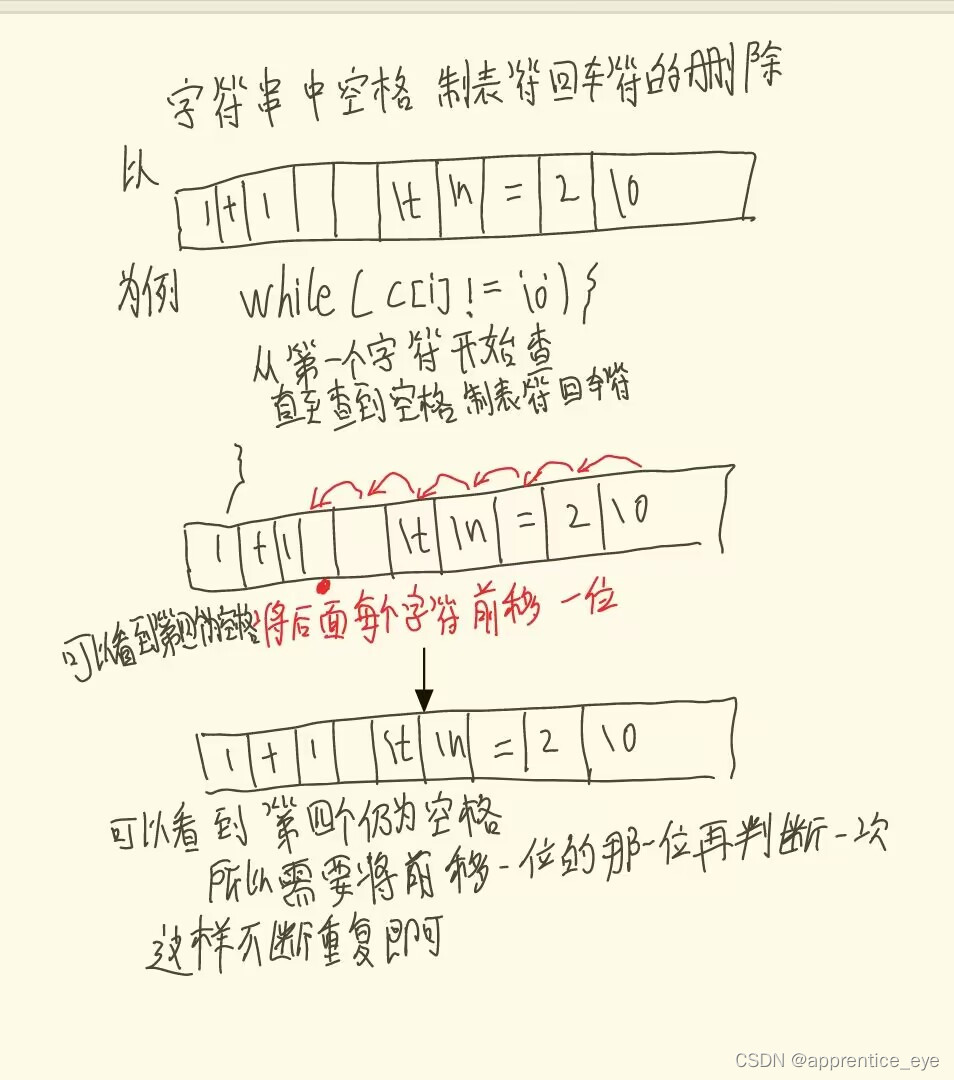 字符串中空格 制表符回车符的删除
以
1 + 1 \t \n = 2 \0
为例 while ( c[i] != '\0' ) {
从第一个字符开始查
直至查到空格制表符回车符
}
1 + 1 \t \n = 2 \0
可以看到第四个为空格 将后面每个字符前移一位
1 + 1 \t \n = 2 \0
可以看到 第四个仍为空格
所以需要将前移一位的那一位再判断一次
这样不断重复即可
CSDN @apprentice_eye